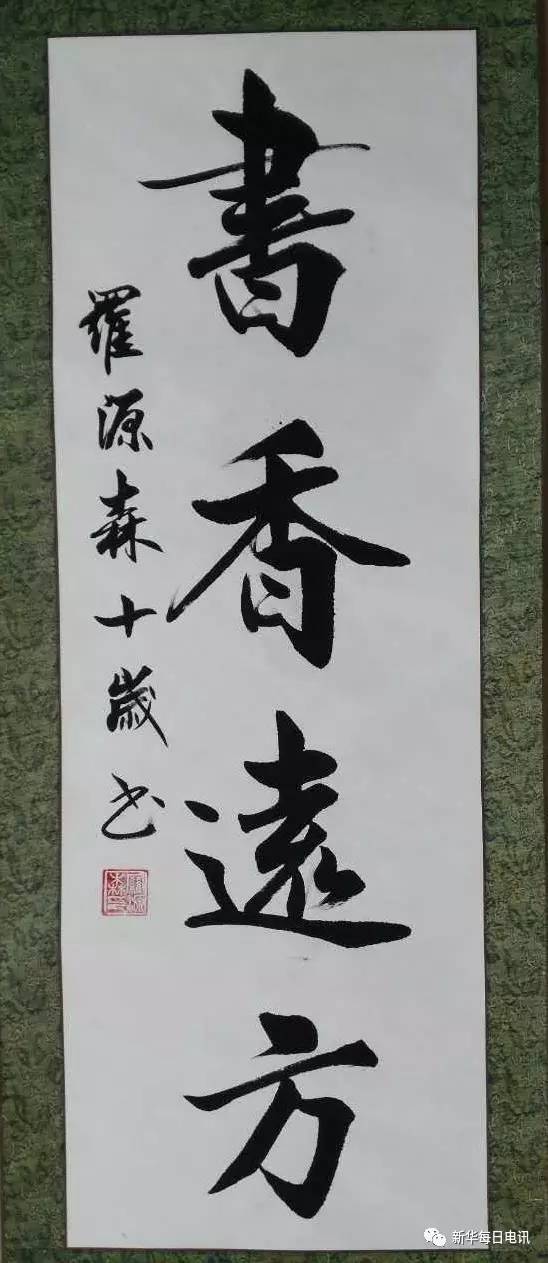 書香遠方
羅源森十歲书
新华每日电讯